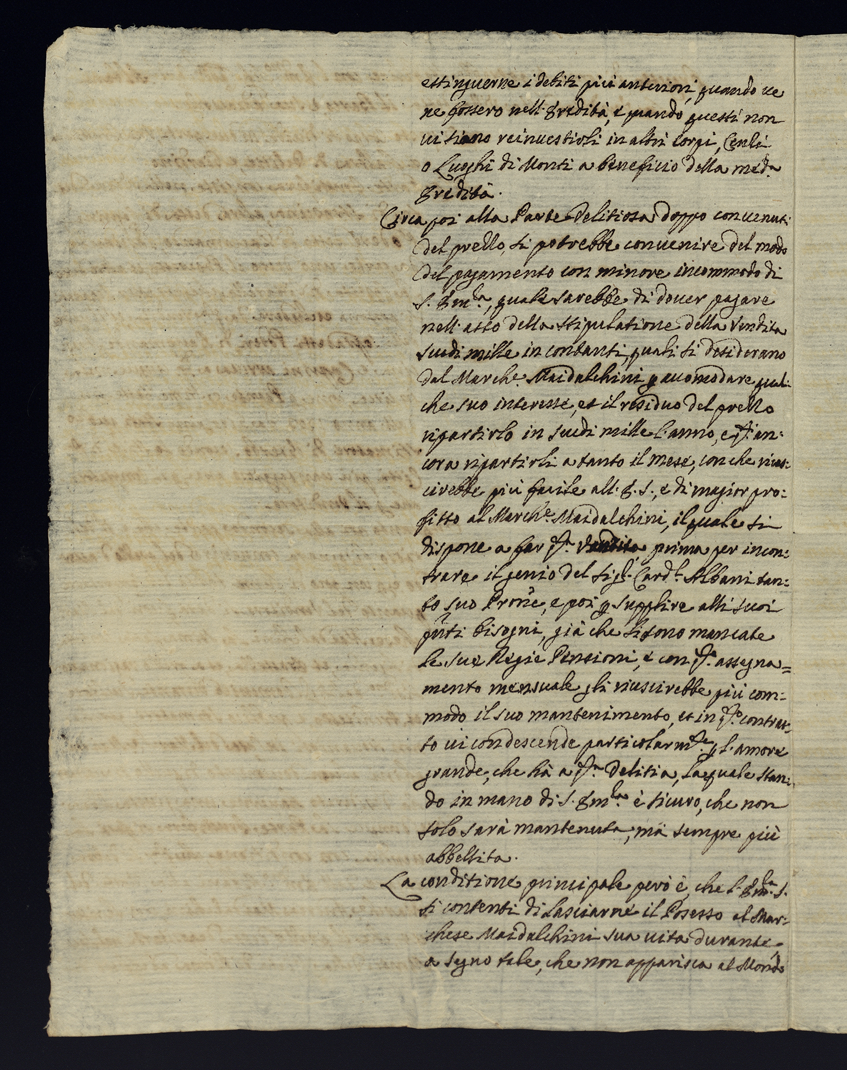 estinguerne i debiti più anteriori, quando ve
ne fossero nell'Eredità, e quando questi non
vi siano reinvestirli in altri corpi, Censi
o Luoghi di Monti a beneficio della med.ª
Eredità.
Circa poi alla Parte delitiosa doppo convenuti
del prezzo, si potrebbe convenire del modo
del pagamento con minore incommodo di
S. Em.za, quale sarebbe di dover pagare
nell'atto della stipulatione della vendita
scudi mille in contanti, quali si desiderano
dal March.e Maidalchini p accomodare qual-
che suo interesse, et il residuo del prezzo
ripartirlo in scudi mille l'anno, e q.ti an-
cora ripartirli a tanto il mese, con che riusc-
cirebbe più facile all'E. S., e di magior pro-
fitto al March.e Maidalchini, il quale si
dispone a far q.ta vendita prima per incon-
trare il genio del Sig.r Card.l Albani tan-
to suo Prone, e poi p supplire alli suoi
pnti bisogni, già che li sono mancate
le sue Regie Pensioni, e con q.to assegna=
mento mensuale gli riuscirebbe più com-
modo il suo mantenimento, et in q.to contrat-
to vi condescende particolarm.te p l'amore
grande, che hà a q.ta delitia, la quale stan-
do in mano di S. Em.za è sicuro, che non
solo sarà mantenuta, mà sempre più
abbellita.
La conditione principale però è, che l'Em.za S.
si contenti di lasciarne il Posesso al Mar-
chese Maidalchini sua vita durante,
a segno tale, che non apparisca al Mondo